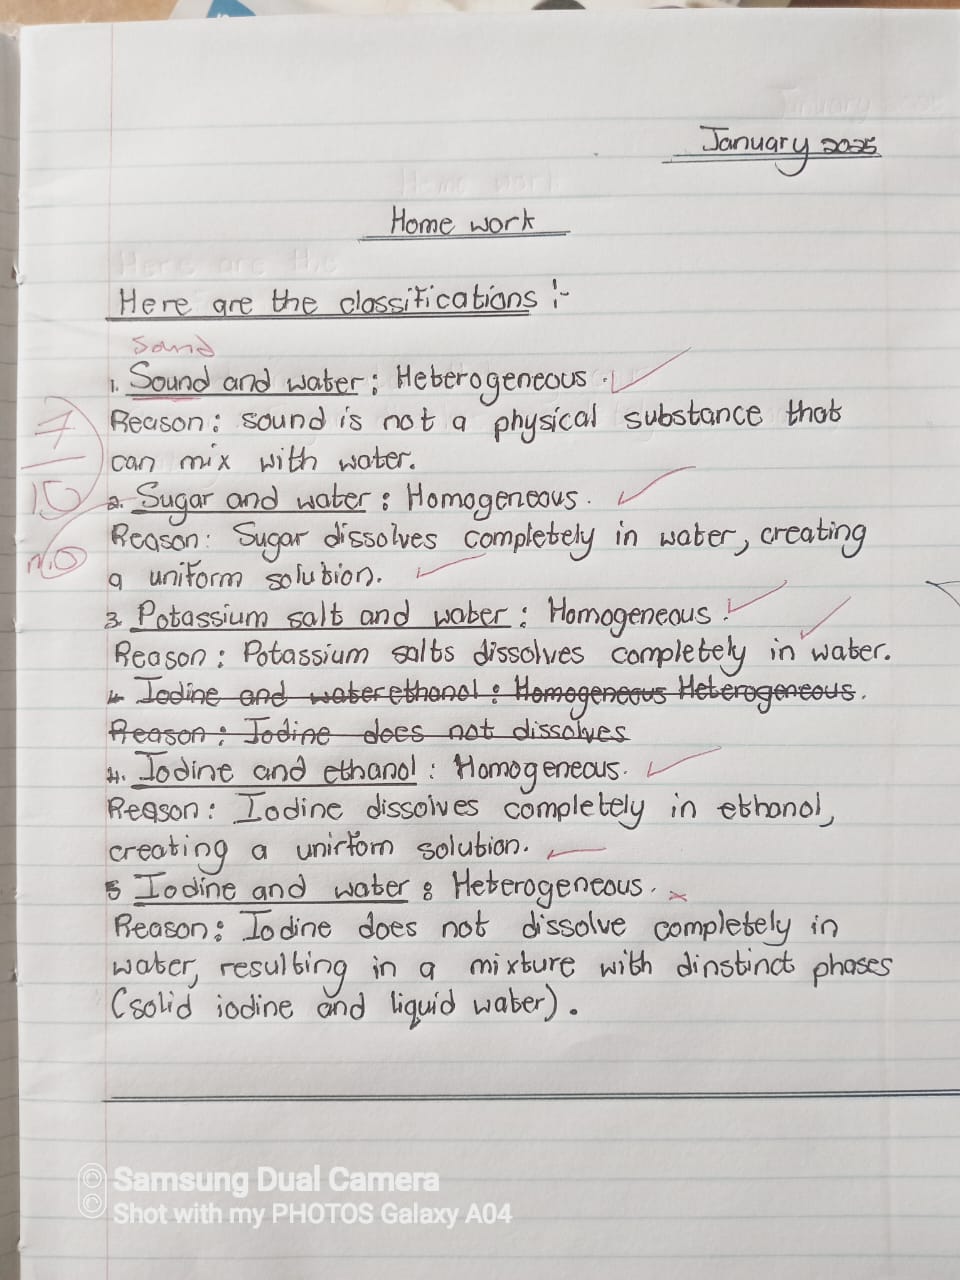 January 2025
Home work
Here are the classifications :-
Sand
1. Sound and water : Heterogeneous .
Reason : sound is not a physical substance that
can mix with water.
7
10
2. Sugar and water : Homogeneous .
Reason : Sugar dissolves completely in water, creating
a uniform solution.
3. Potassium salt and water : Homogeneous .
Reason : Potassium salts dissolves completely in water.
4. Iodine and water ethanol : Homogeneous Heterogeneous .
Reason : Iodine does not dissolves
4. Iodine and ethanol : Homogeneous .
Reason : Iodine dissolves completely in ethanol,
creating a unirtom solution.
5 Iodine and water : Heterogeneous .
Reason : Iodine does not dissolve completely in
water, resulting in a mixture with dinstinct phases
(solid iodine and liquid water) .
Samsung Dual Camera
Shot with my PHOTOS Galaxy A04